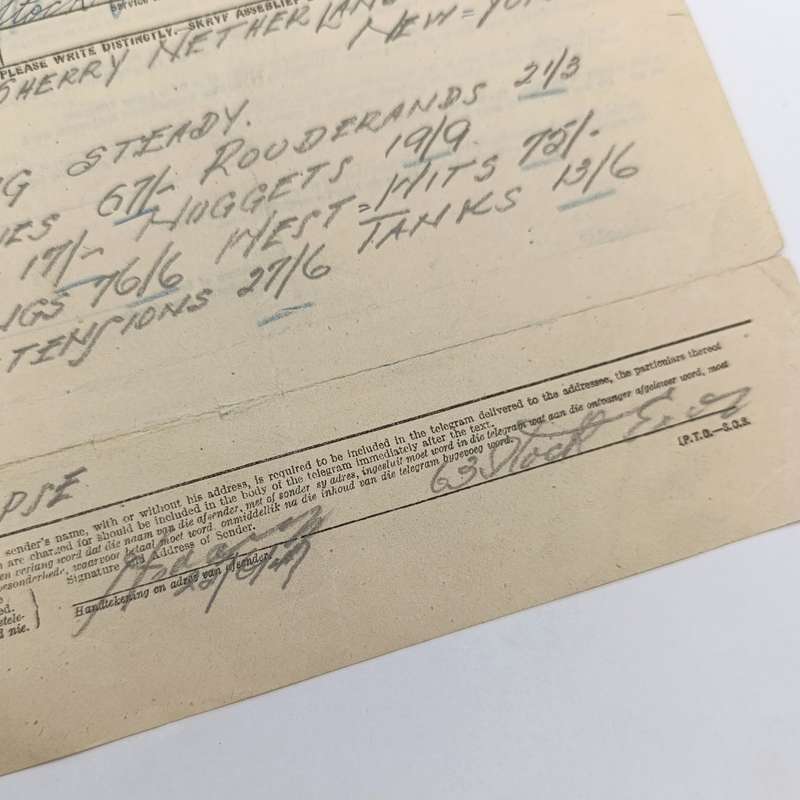 PLEASE WRITE DISTINCTLY.—SKRYF ASSEBLIEF
SHERRY NETHERLAN
NEW=YOR
NG STEADY.
IES 67/- ROUDERANDS 21/3
17/- NUGGETS 19/9
NGS 76/6 WEST=WITS 75/-
TENSIONS 27/6 TANKS 13/6
PSE
sender's name, with or without his address, is required to be included in the telegram delivered to the addressee, the particulars thereof
are charged for should be included in the body of the telegram immediately after the text.
verlang word dat die naam van die afsender, met of sonder sy adres, ingesluit moet word in die telegram wat aan die ontvanger afgelewer word, moet
besonderhede, waarvoor betaal moet word, onmiddellik na die inhoud van die telegram bygevoeg word.
63 Stock Ex
(P.T.O.—S.O.S.
Signature and Address of Sender.
Handtekening en adres van afsender.
nie.